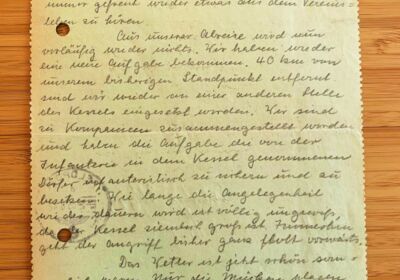 immer gefreut wieder etwas aus dem Vereins-
leben zu hören.
Aus unserer Abreise wird nun
vorläufig wieder nichts. Wir haben wieder
eine neue Aufgabe bekommen. 40 km von
unserem bisherigen Standpunkt entfernt
sind wir wieder an einer anderen Stelle
des Kessels eingesetzt worden. Wir sind
zu Kompanieen zusammengestellt worden
und haben die Aufgabe die von der
Infanterie in dem Kessel genommenen
Dörfer zu sichern und zu
Wie lange die Angelegenheit
wieder dauern wird ist völlig ungewiß,
da der Kessel ziemlich groß ist. Immerhin
geht der Angriff bisher ganz flott vorwärts.
Das Wetter ist jetzt schön som-
Nur die Mücken plagen